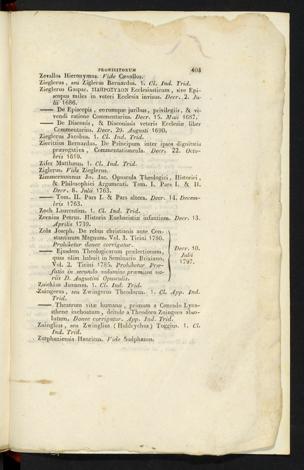 PROHIBITORUM 403
Zevallos Hieronymus. Vide Cevallos.
Zieglerus, seu Ziglerus Bernardus. 1. Cl. Ind. Trid.
Zieglerus Gaspar. Ecclesiasticum, sive Epi-
scopus miles in veteri Ecclesia invisus. Decr. 2. Ju-
lii 1686.
—— De Episcopis, eorumque juribus, privilegiis, & vi-
vendi ratione Commentarius. Decr. 15. Maii 1687.
—— De Diaconis, & Diaconissis veteris Ecclesiæ liber
Commentarius. Decr. 29. Augusti 1690.
Zieglerus Jacobus. 1. Cl. Ind. Trid.
Zieritzius Bernardus. De Principum inter ipsos dignitatis
prærogativa, Commentatiuncula. Decr. 22. Octo-
bris 1619.
Zifer Matthæus. 1. Cl. Ind. Trid.
Ziglerus. Vide Zieglerus.
Zimmermannus Jo. Jac. Opuscula Theologici, Historici,
& Philosophici Argumenti. Tom. I. Pars I. & II.
Decr. 8. Julii 1763.
—— Tom. II. Pars I. & Pars altera. Decr. 14. Decem-
bris 1763.
Zoch Laurentius. 1. Cl. Ind. Trid.
Zornius Petrus. Historia Eucharistiæ infantium. Decr. 13.
Aprilis 1739.
Zola Joseph. De rebus christianis ante Con-
stantinum Magnum. Vol. 3. Ticini 1780.
Prohibetur donec corrigatur.
—— Ejusdem Theologicarum prælectionum,
quas olim habuit in Seminario Brixiano,
Vol. 2. Ticini 1785. Prohibetur Præ-
fatio in secundo volumine præmissa va-
riis D. Augustini Opusculis.
Decr. 10.
Julii
1797.
Zoichius Joannes. 1. Cl. Ind. Trid.
Zuingerus, seu Zwingerus Theodorus. 1. Cl. App. Ind.
Trid.
—— Theatrum vitæ humanæ, primum a Conrado Lyco-
sthene inchoatum, deinde a Theodoro Zuingero abso-
lutum. Donec corrigatur. App. Ind. Trid.
Zuinglius, seu Zwinglius (Huldrychus) Toggius. 1. Cl.
Ind. Trid.
Zutphaniensis Henricus. Vide Sudphanus.